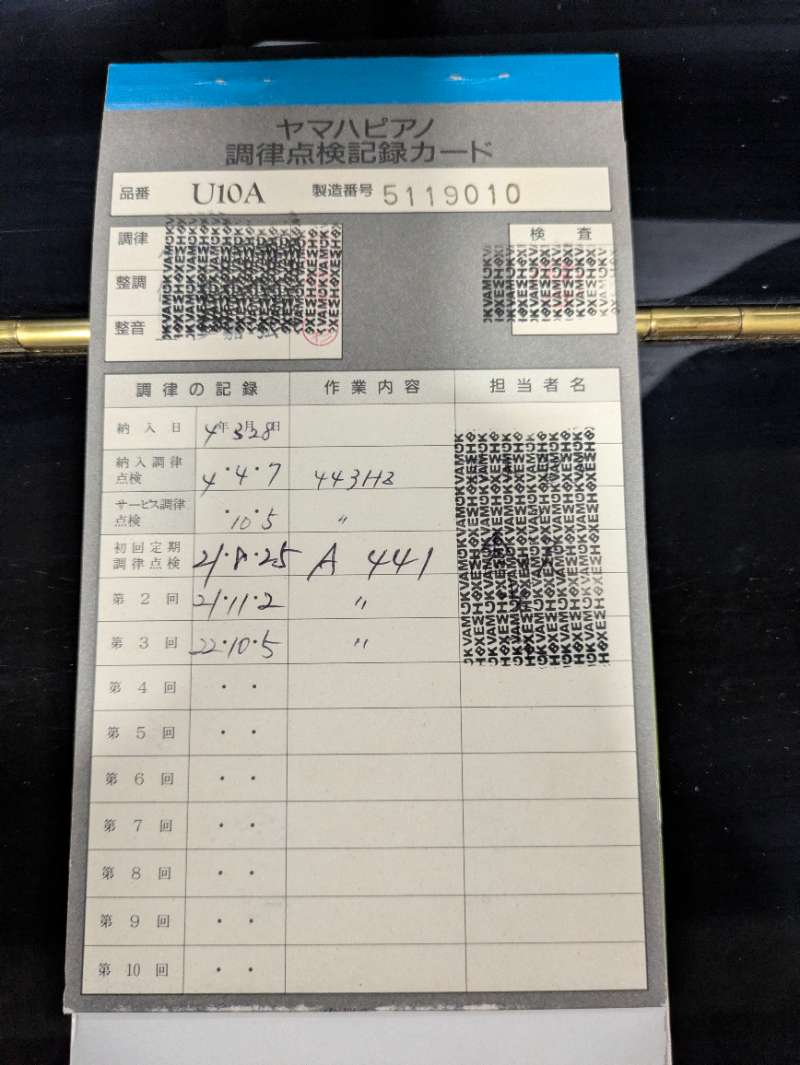 ヤマハピアノ
調律点検記録カード
品番 U10A 製造番号 5119010
調律
整調
整音
検査
調律の記録 作業内容 担当者名
納入日 4年3月28日
納入調律点検 4・4・7 443Hz
サービス調律点検 ・10・5 〃
初回定期調律点検 21・8・25 A 441
第2回 21・11・2 〃
第3回 22・10・5 〃
第4回 ・・
第5回 ・・
第6回 ・・
第7回 ・・
第8回 ・・
第9回 ・・
第10回 ・・